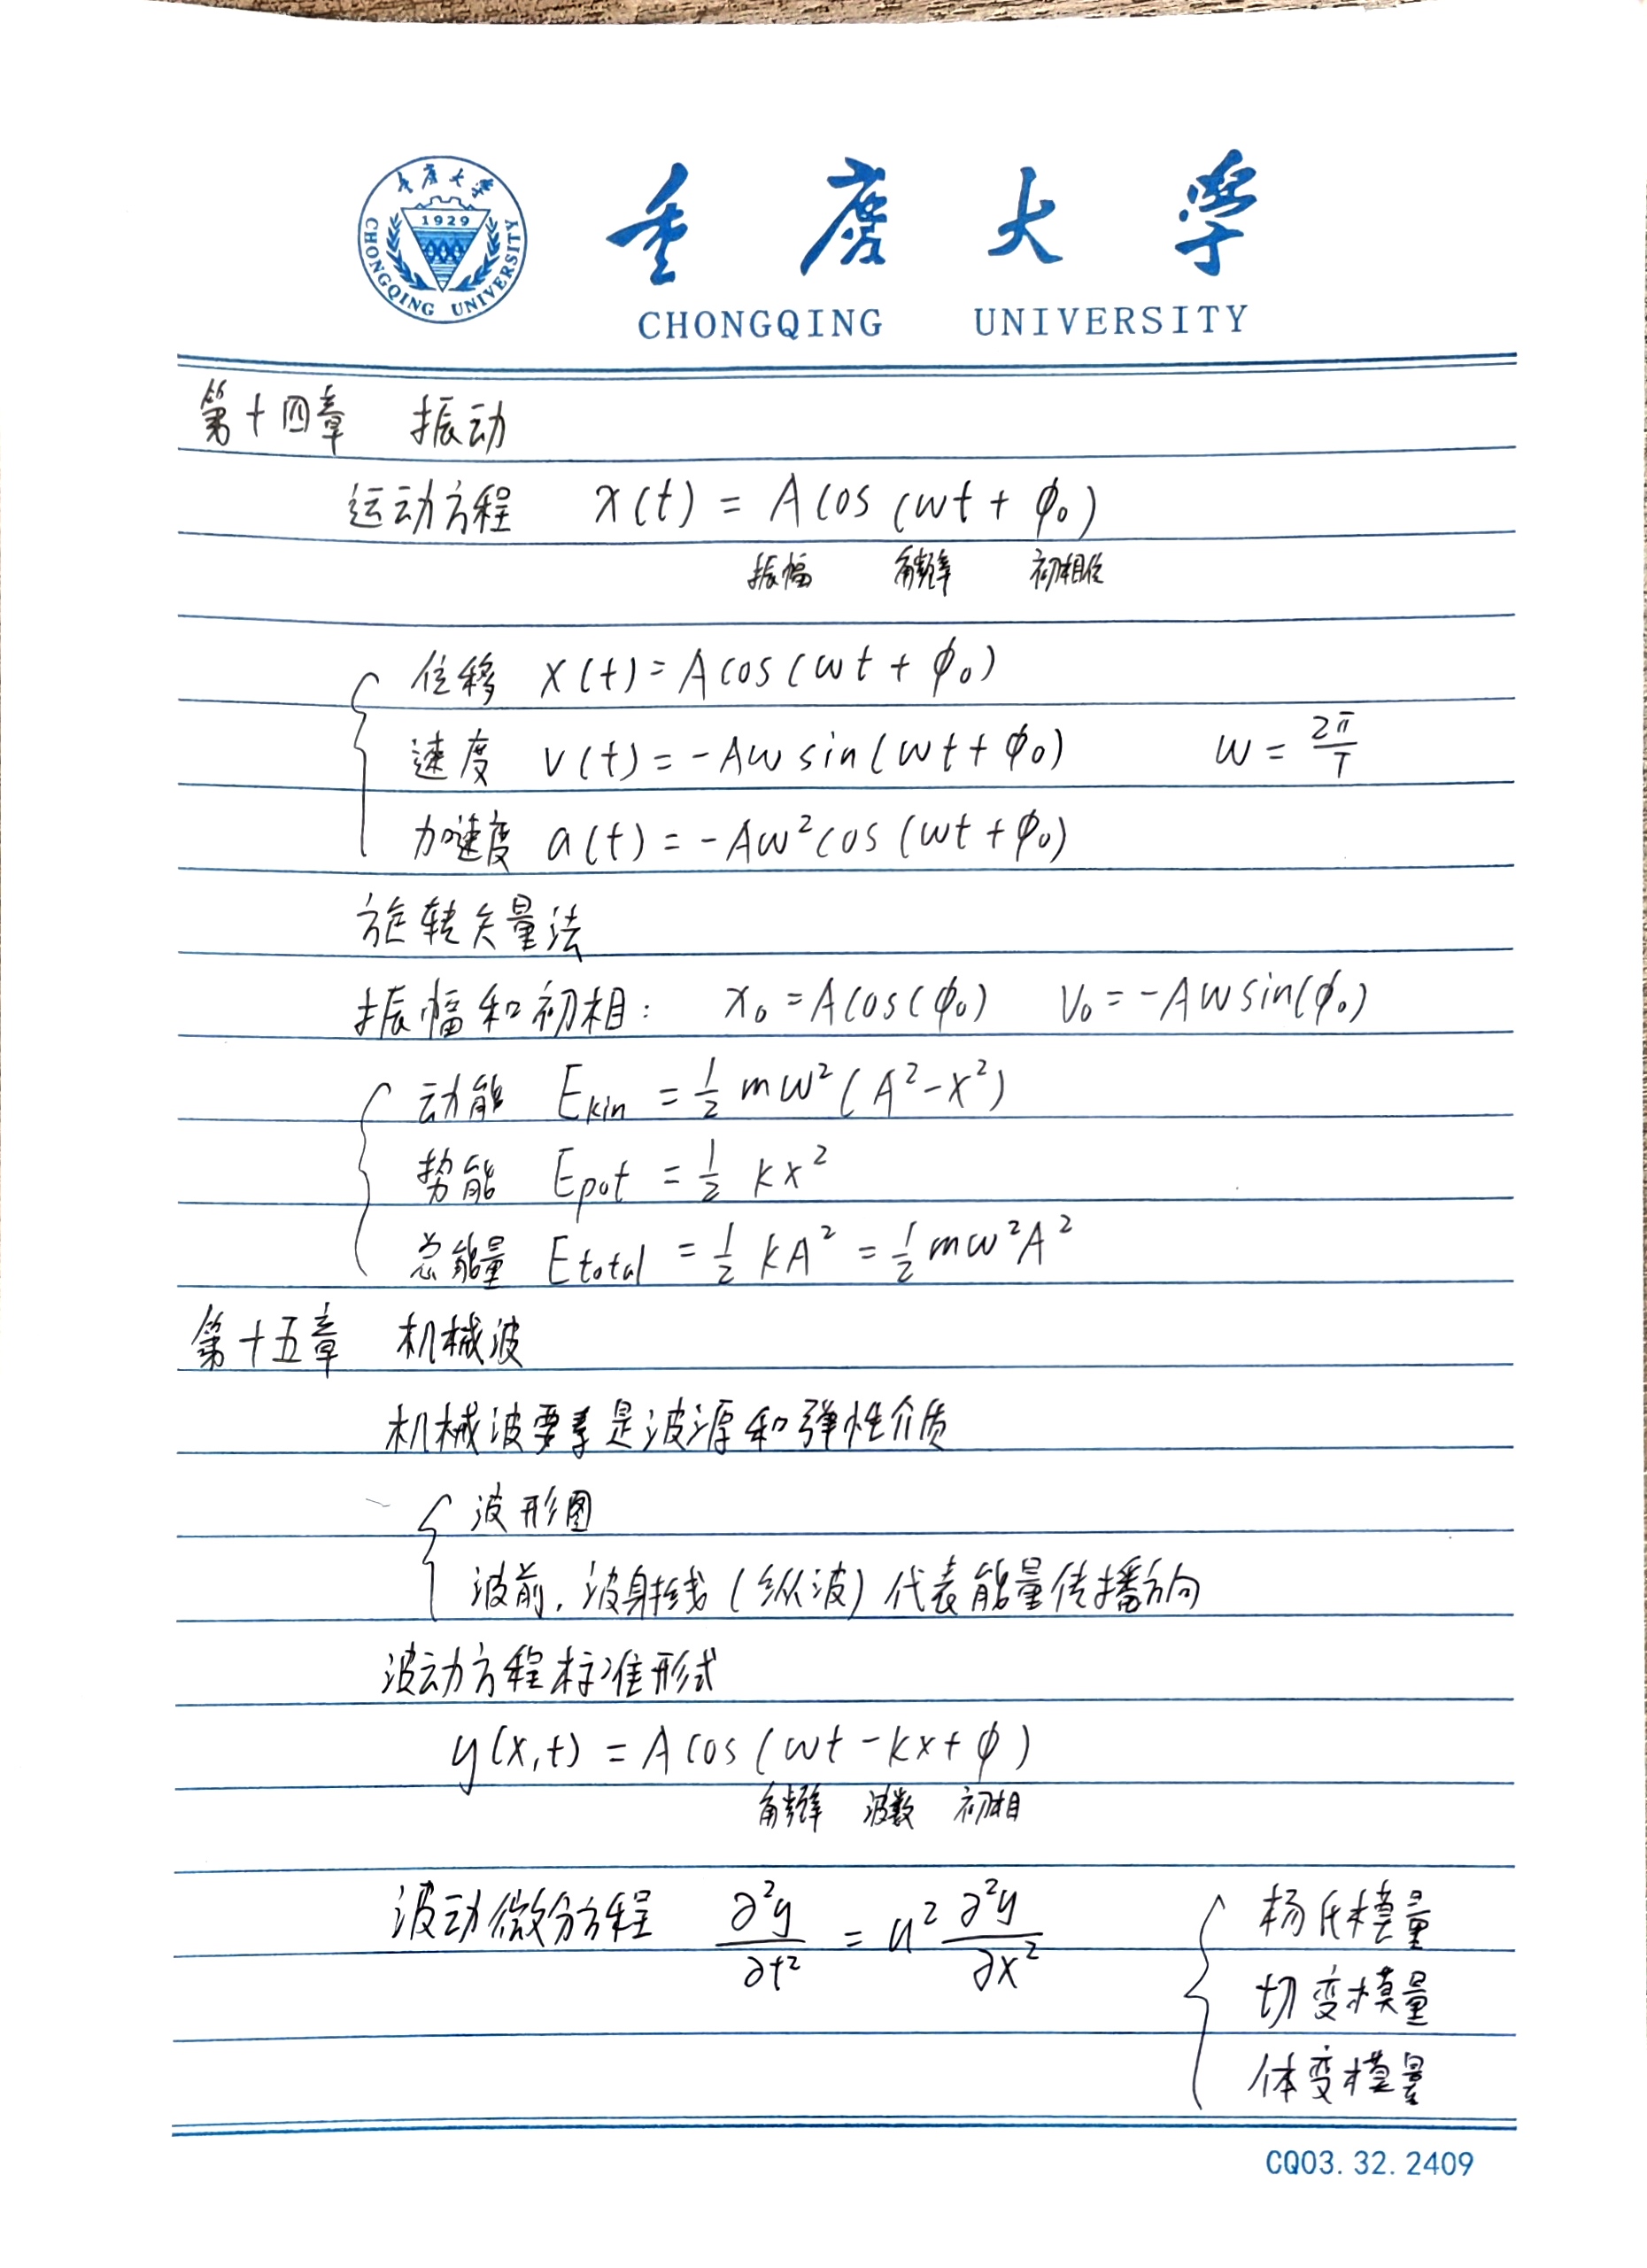 重庆大学
1929
CHONGQING UNIVERSITY
重庆大学
CHONGQING UNIVERSITY
第十四章 振动
运动方程 x(t) = A cos (ωt + ϕ₀)
振幅 角频率 初相位
位移 x(t) = A cos (ωt + ϕ₀)
速度 v(t) = -Aω sin (ωt + ϕ₀) ω = 2π/T
加速度 a(t) = -Aω² cos (ωt + ϕ₀)
旋转矢量法
振幅和初相: x₀ = A cos(ϕ₀) v₀ = -Aω sin(ϕ₀)
动能 Ekin = 1/2 mω² (A² - x²)
势能 Epot = 1/2 kx²
总能量 Etotal = 1/2 kA² = 1/2 mω²A²
第十五章 机械波
机械波要素是波源和弹性介质
波形图
波前, 波射线 (纵波) 代表能量传播方向
波动方程标准形式
y(x,t) = A cos (ωt - kx + ϕ)
角频率 波数 初相
波动微分方程 ∂²y/∂t² = u² ∂²y/∂x² 杨氏模量
切变模量
体变模量
CQ03.32.2409